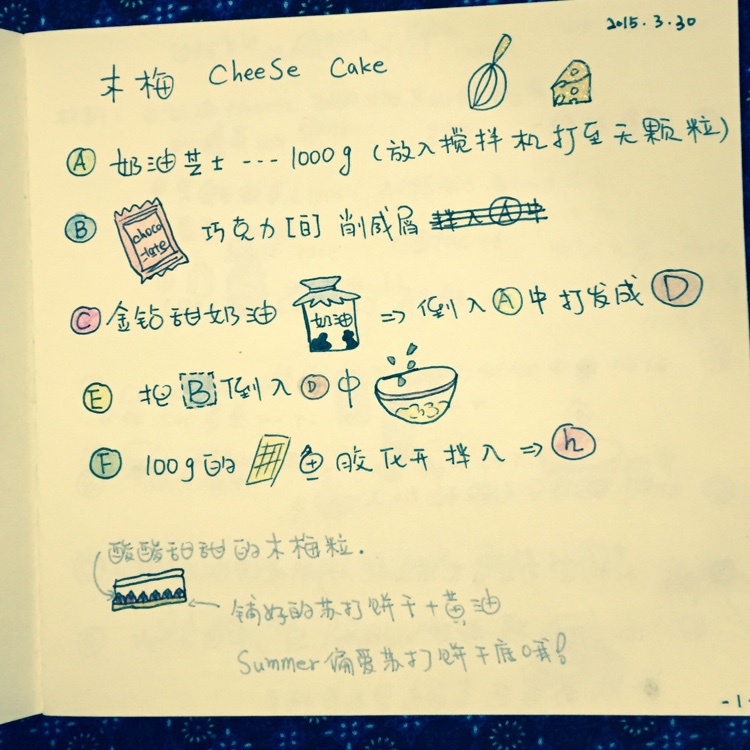 2015.3.30
木梅 Cheese Cake
Ⓐ 奶油芝士 --- 1000g (放入搅拌机打至无颗粒)
Ⓑ chocolate 巧克力[白] 削成屑 拌入Ⓐ中
Ⓒ 金钻甜奶油 奶油 => 倒入Ⓐ中打发成Ⓓ
Ⓔ 把B倒入Ⓓ中
Ⓕ 100g的鱼胶化开拌入 => ⓗ
酸酸甜甜的木梅粒.
铺好的苏打饼干+黄油
Summer偏爱苏打饼干底哦!
-1-